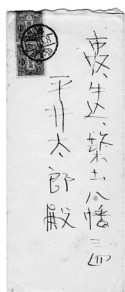 東京、牛込、築土八幡
平井太郎殿